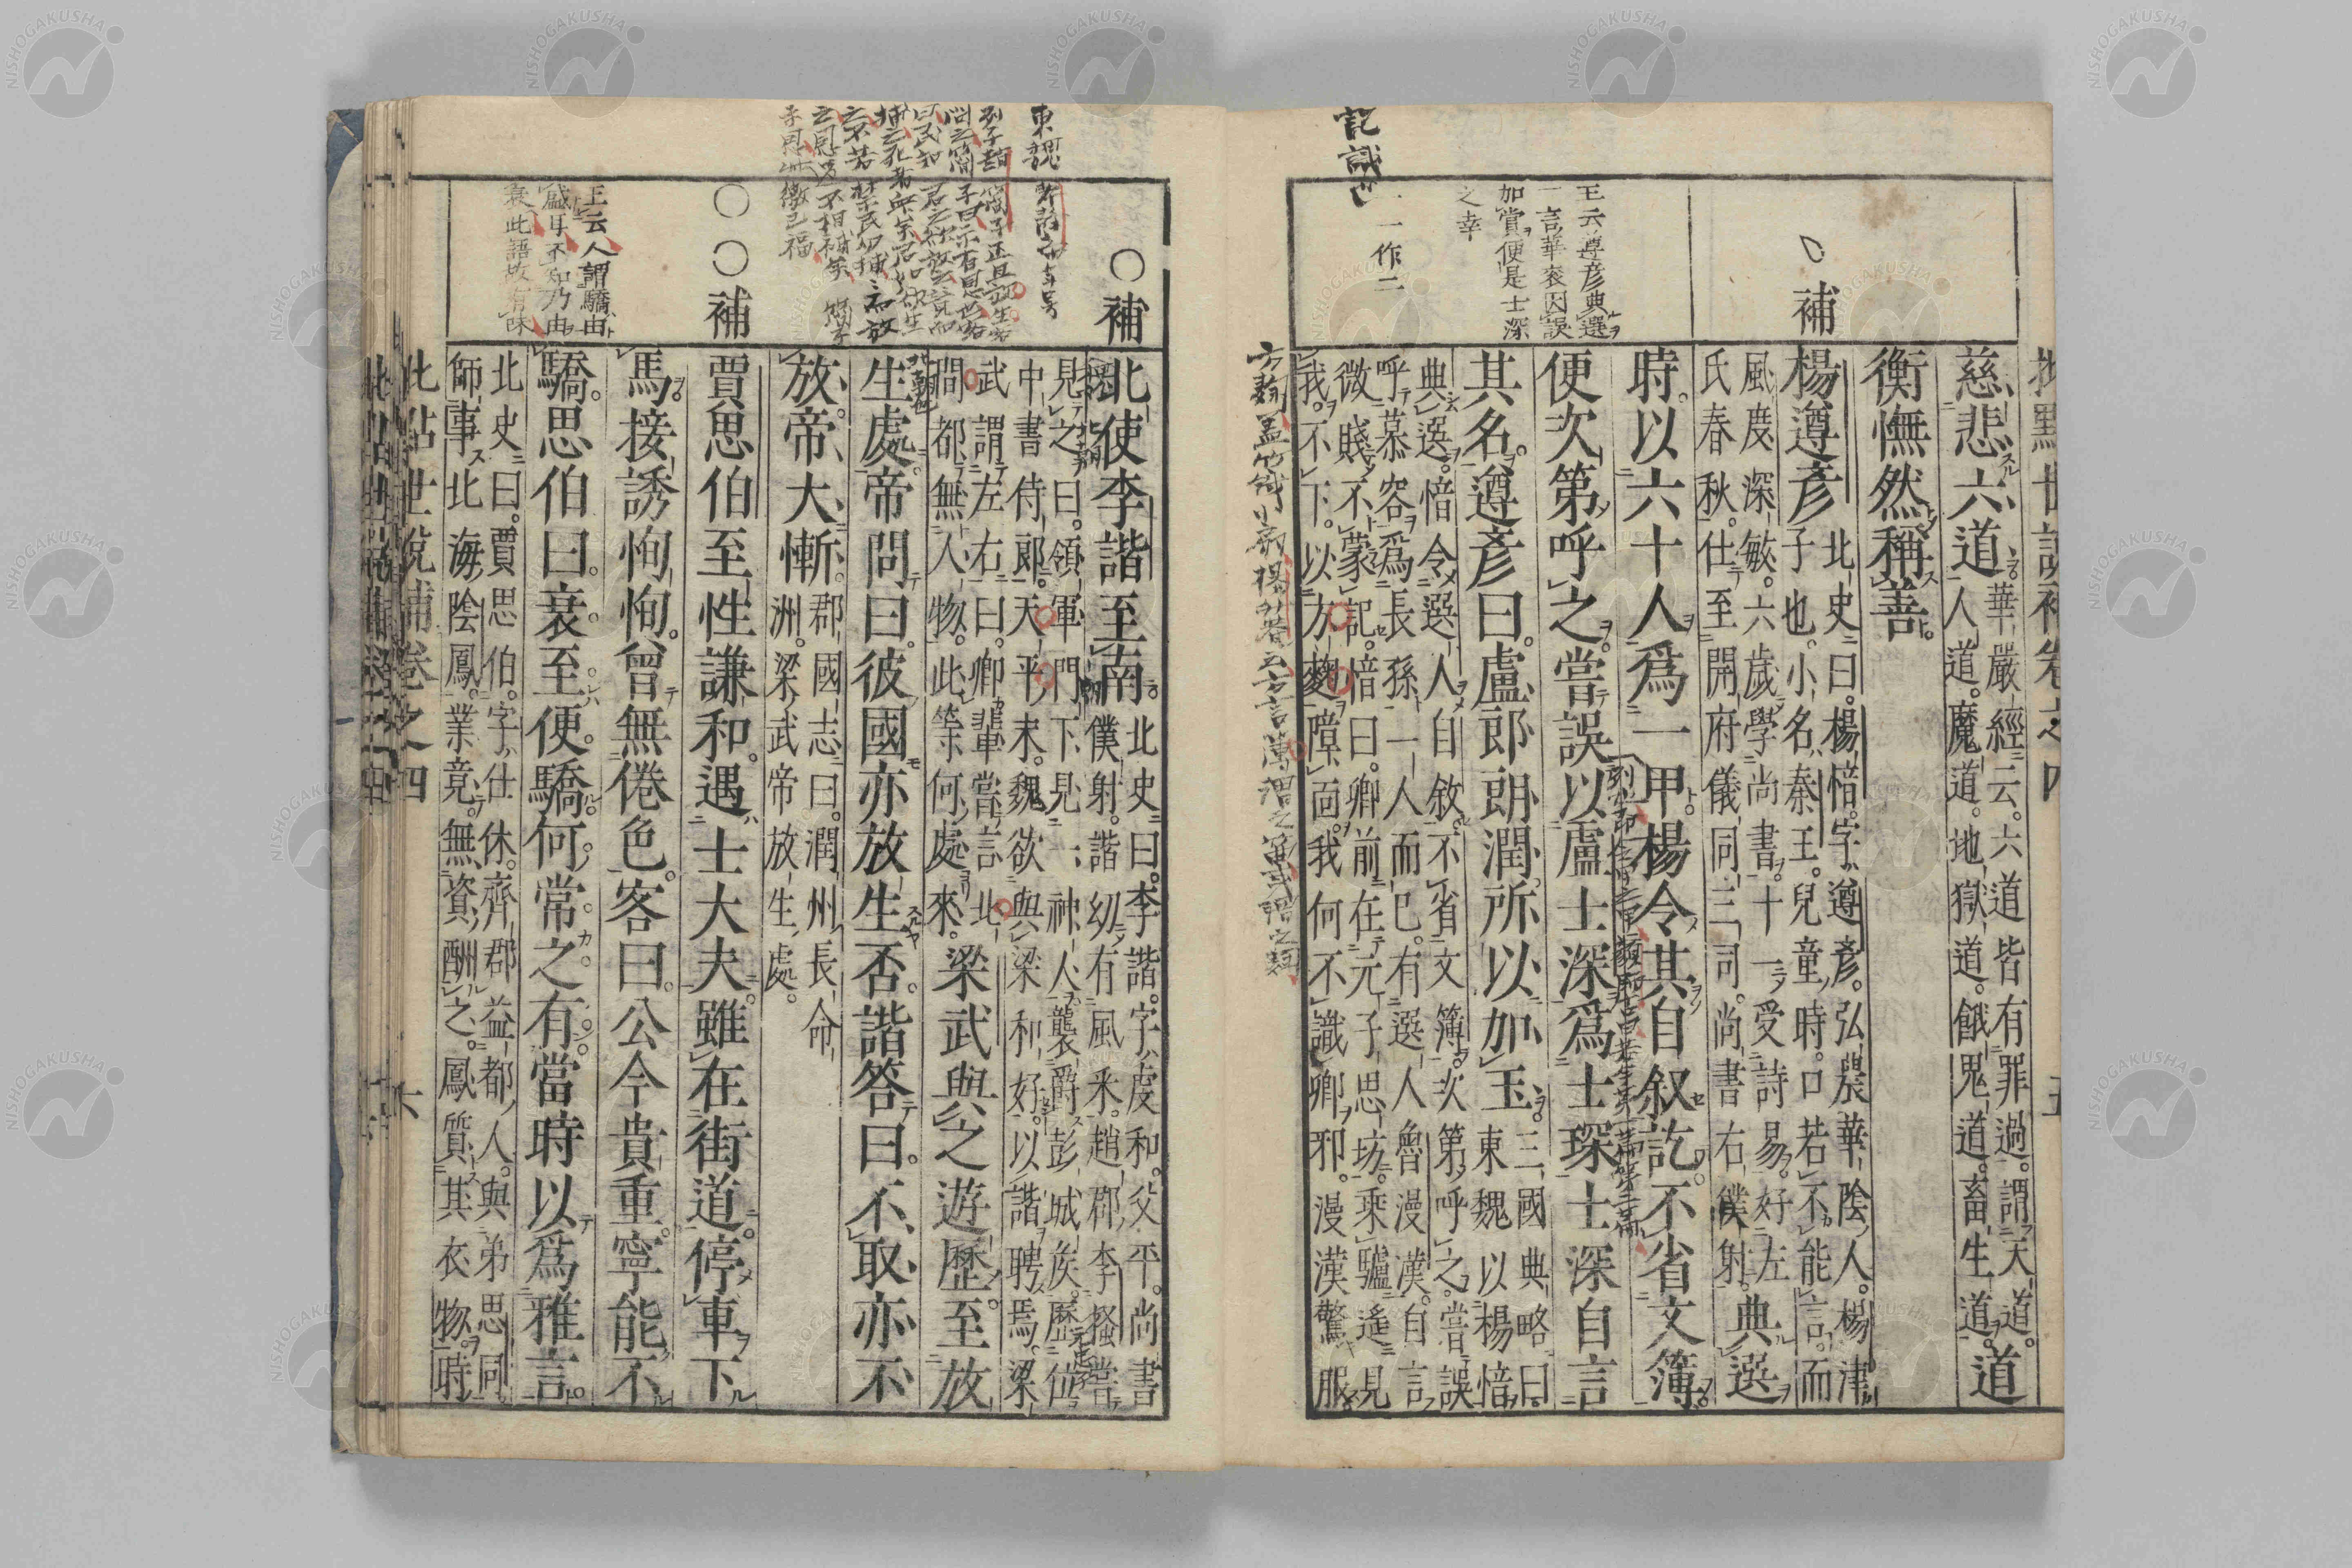 批點世說補卷之四
五
慈悲六道
華嚴經云。六道皆有罪過。謂天道。
人道。魔道。地獄道。餓鬼道。畜生道。
道
衡憮然稱善。
補
楊遵彥
北史曰。楊愔。字遵彥。弘農華陰人。楊津
子也。小名秦王。兒童時。口若不能言。而
風度深敏。六歲學尚書。十一受詩易。好左
氏春秋。仕至開府儀同三司。尚書右僕射。
典選
時。以六十人爲一甲。楊令其自叙訖。不省文簿。
便次第呼之。嘗誤以盧士深爲士琛。士深自言
其名。遵彥曰。盧郎朗潤。所以加玉。
三國典略曰。
東魏以楊愔
典選。愔令選人自敘。不省文簿。次第呼之。嘗誤
呼慕容爲長孫。一人而已。有選人魯漫漢。自言
微賤不蒙記。愔曰。卿前在元子思坊。乘驢遙見
我。不下。以方麴障面。我何不識卿邪。漫漢驚服
王云遵彥典選
一言華衮因誤
加賞便是士深
之幸
一一作二
記識也
補
北使李諧至南。
北史曰。李諧。字虔和。父平。尚書
僕射。諧幼有風采。趙郡李搔嘗
見之曰。領軍門下見一神人。襲爵彭城侯。歷位
中書侍郎。天平末。魏欲與梁和好。以諧聘焉。梁
武謂左右曰。卿輩嘗言北
間都無人物。此等何處來。
梁武與之遊歷至放
生處。帝問曰。彼國亦放生否。諧答曰。不取亦不
放。帝大慚。
郡國志曰。潤州長命
洲。梁武帝放生處。
補
賈思伯至性謙和。遇士大夫。雖在街道。停車下
馬。接誘恂恂。曾無倦色。客曰。公今貴重。寧能不
驕。思伯曰。衰至便驕。何常之有。當時以爲雅言。
北史曰。賈思伯。字仕休。齊郡益都人。與弟思同
師事北海陰鳳。業竟。無資酬之。鳳質其衣物。時
王云人謂驕由
盛耳不知乃由
衰此語故有味
批點世說補卷之四
六